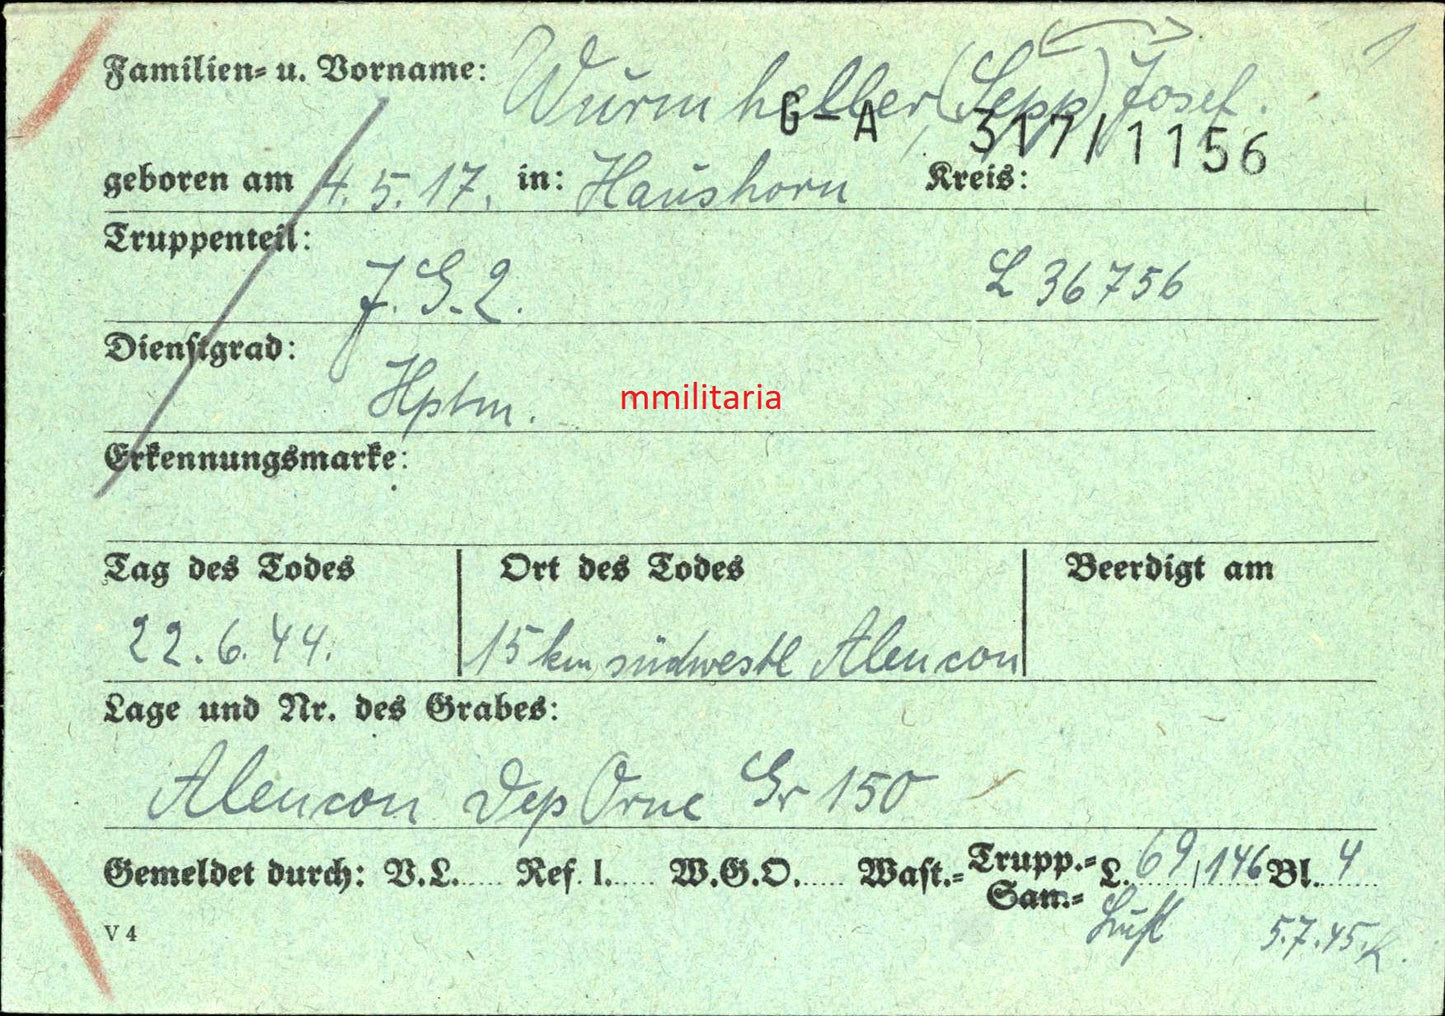 Familien- u. Vorname: Wurmheller (Sepp) Josef.
G-A 317/1156
geboren am 4.5.17. in: Haushorn Kreis:
Truppenteil:
J.G.2. L 36756
Dienstgrad:
Hptm.
mmilitaria
Erkennungsmarke:
Tag des Todes Ort des Todes Beerdigt am
22.6.44. 15 km südwestl Alencon
Lage und Nr. des Grabes:
Alencon Dep Orne Gr 150
Gemeldet durch: V.L..... Ref. I..... W.G.O..... Wast.= Trupp.=L. 69/146 Bl. 4
San.= Luft 5.7.45.
V 4